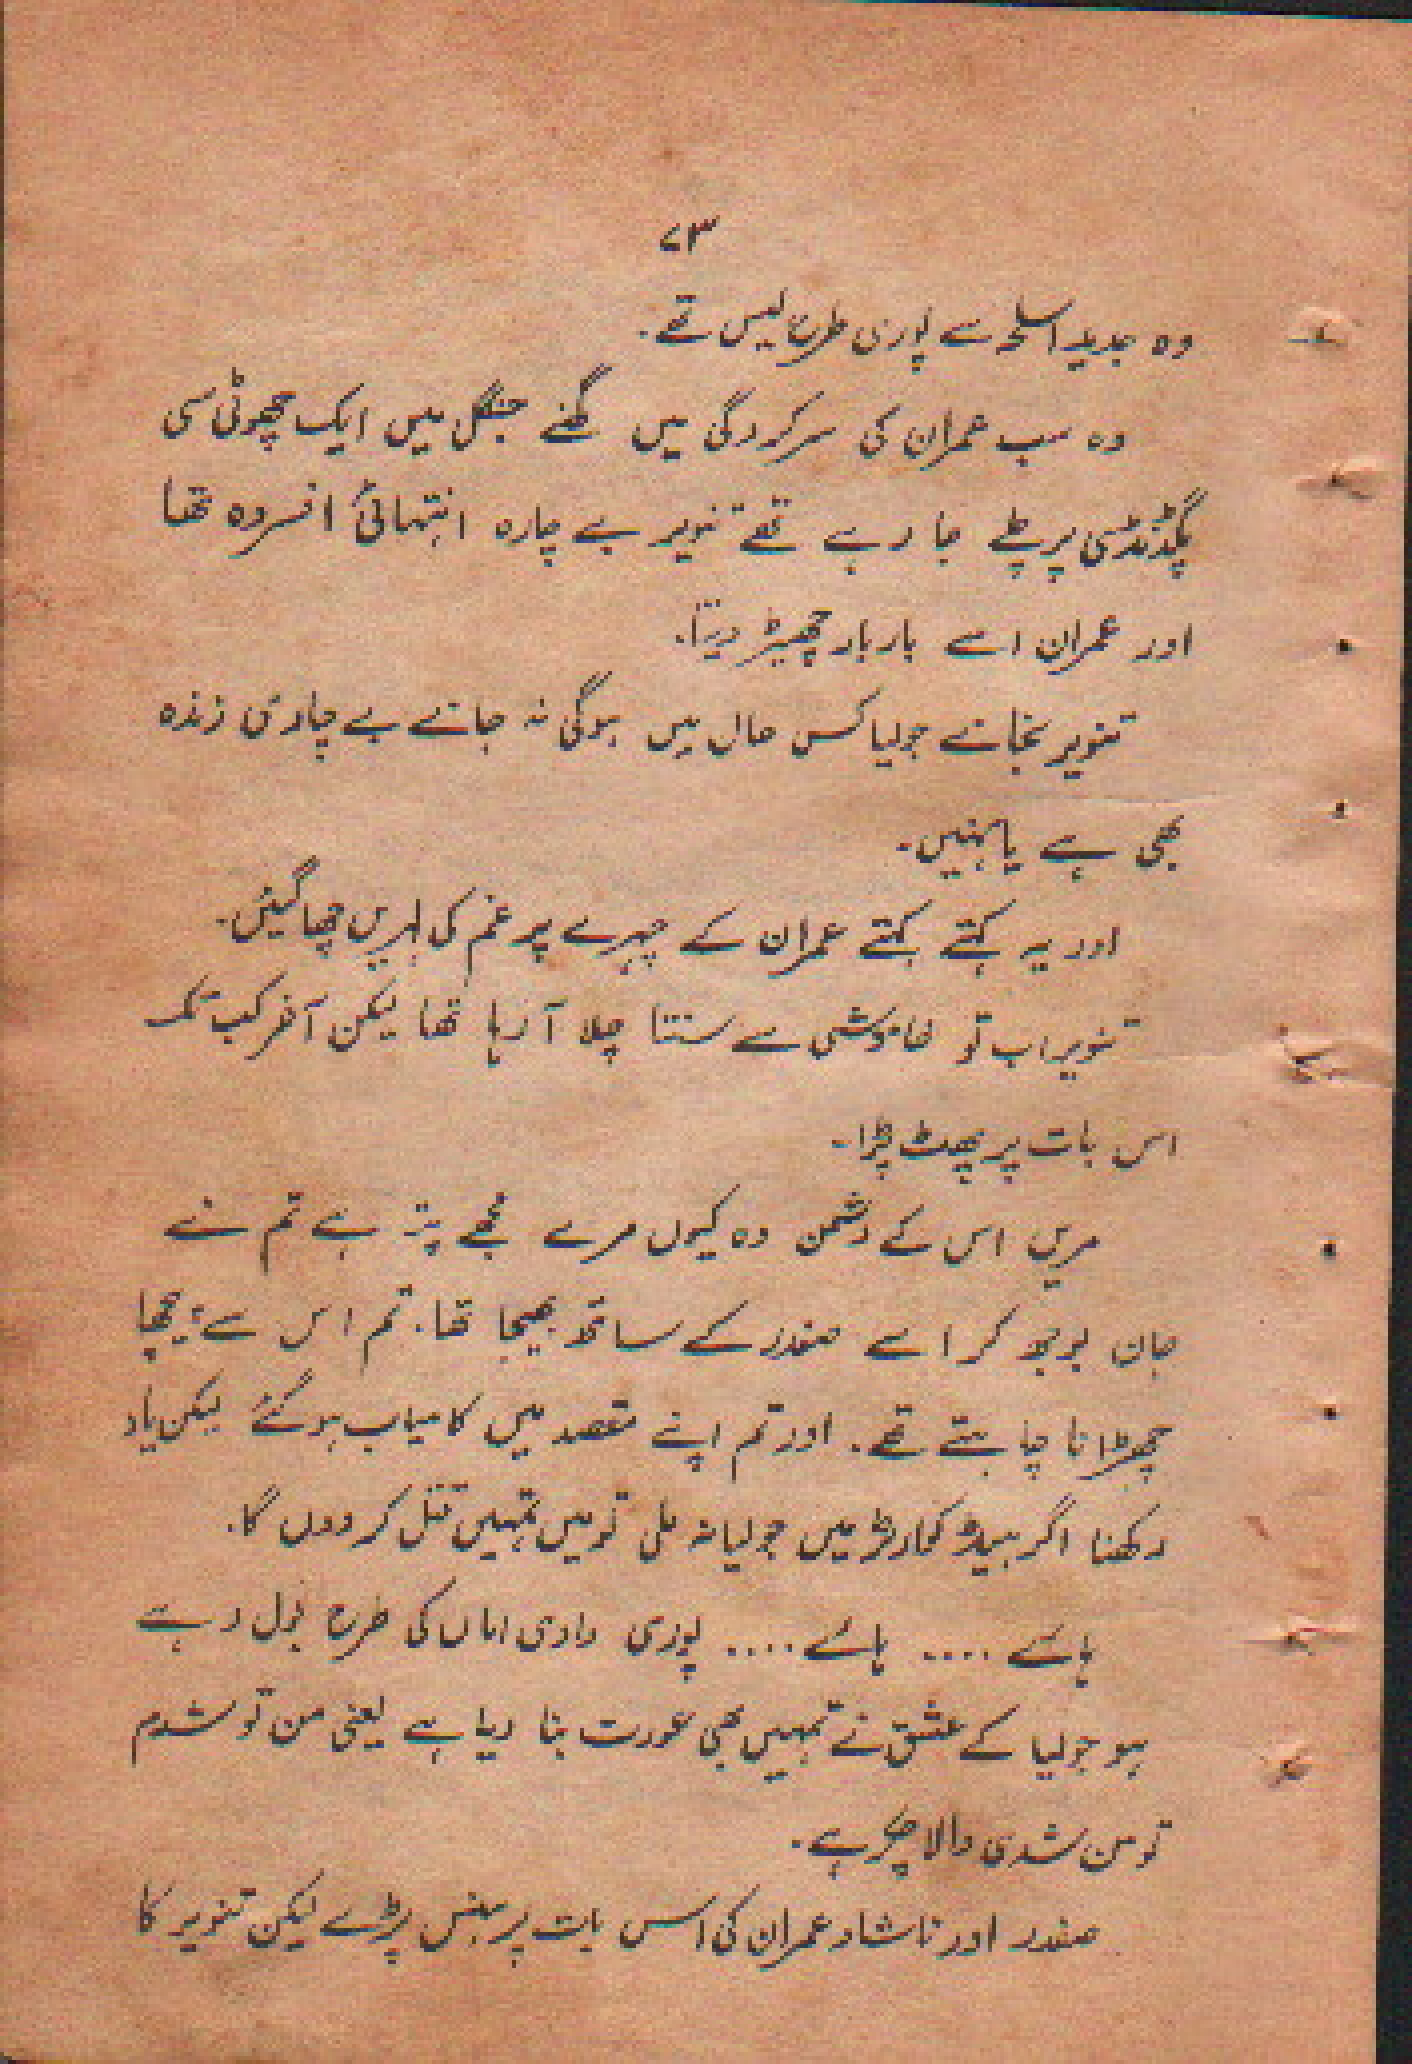 ۷۳
وہ جدید اسلحہ سے پوری طرح لیس تھے۔
وہ سب عمران کی سرکردگی میں گھنے جنگل میں ایک چھوٹی سی
پگڈنڈی پر چلے جا رہے تھے تنویر بے چارہ انتہائی افسردہ تھا
اور عمران اسے بار بار چھیڑ دیتا۔
تنویر نجانے جولیا کس حال میں ہوگی نہ جانے بے چاری زندہ
بھی ہے یا نہیں۔
اور یہ کہتے کہتے عمران کے چہرے پر غم کی لہریں چھا گئیں۔
تنویر اب تو خاموشی سے سنتا چلا آ رہا تھا لیکن آخر کب تک
اس بات پر پھٹ پڑا۔
مریں اس کے دشمن وہ کیوں مرے مجھے پتہ ہے تم نے
جان بوجھ کر اسے صفدر کے ساتھ بھیجا تھا۔ تم اس سے پیچھا
چھڑانا چاہتے تھے۔ اور تم اپنے مقصد میں کامیاب ہو گئے لیکن یاد
رکھنا اگر ہیڈ کوارٹر میں جولیا نہ ملی تو میں تمہیں قتل کر دوں گا۔
ہائے .... ہائے .... پوری دادی اماں کی طرح بول رہے
ہو جولیا کے عشق نے تمہیں بھی عورت بنا دیا ہے یعنی من تو شدم
تو من شدی والا چکر ہے۔
صفدر اور ناشاد عمران کی اس بات پر ہنس پڑے لیکن تنویر کا